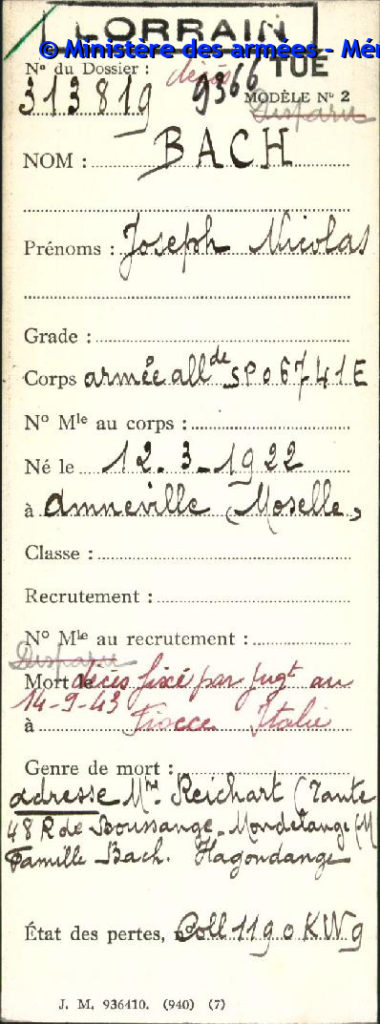 LORRAIN
© Ministère des armées - Mé
N° du Dossier : décès 9366 TUE
313819 MODÈLE N° 2
Disparu
NOM : BACH
Prénoms : Joseph Nicolas
Grade :
Corps armée all de SP 06741 E
N° Mle au corps :
Né le 12-3-1922
à Amneville (Moselle)
Classe :
Recrutement :
N° Mle au recrutement :
Disparu
Mort le décès fixé par jugt au
14-9-43
à Fiocca Italie
Genre de mort :
adresse Mme Reichart (Tante
48 R de Boussange - Mondelange (M
Famille Bach. Hagondange
État des pertes, Coll 1190 KWg
J. M. 936410. (940) (7)